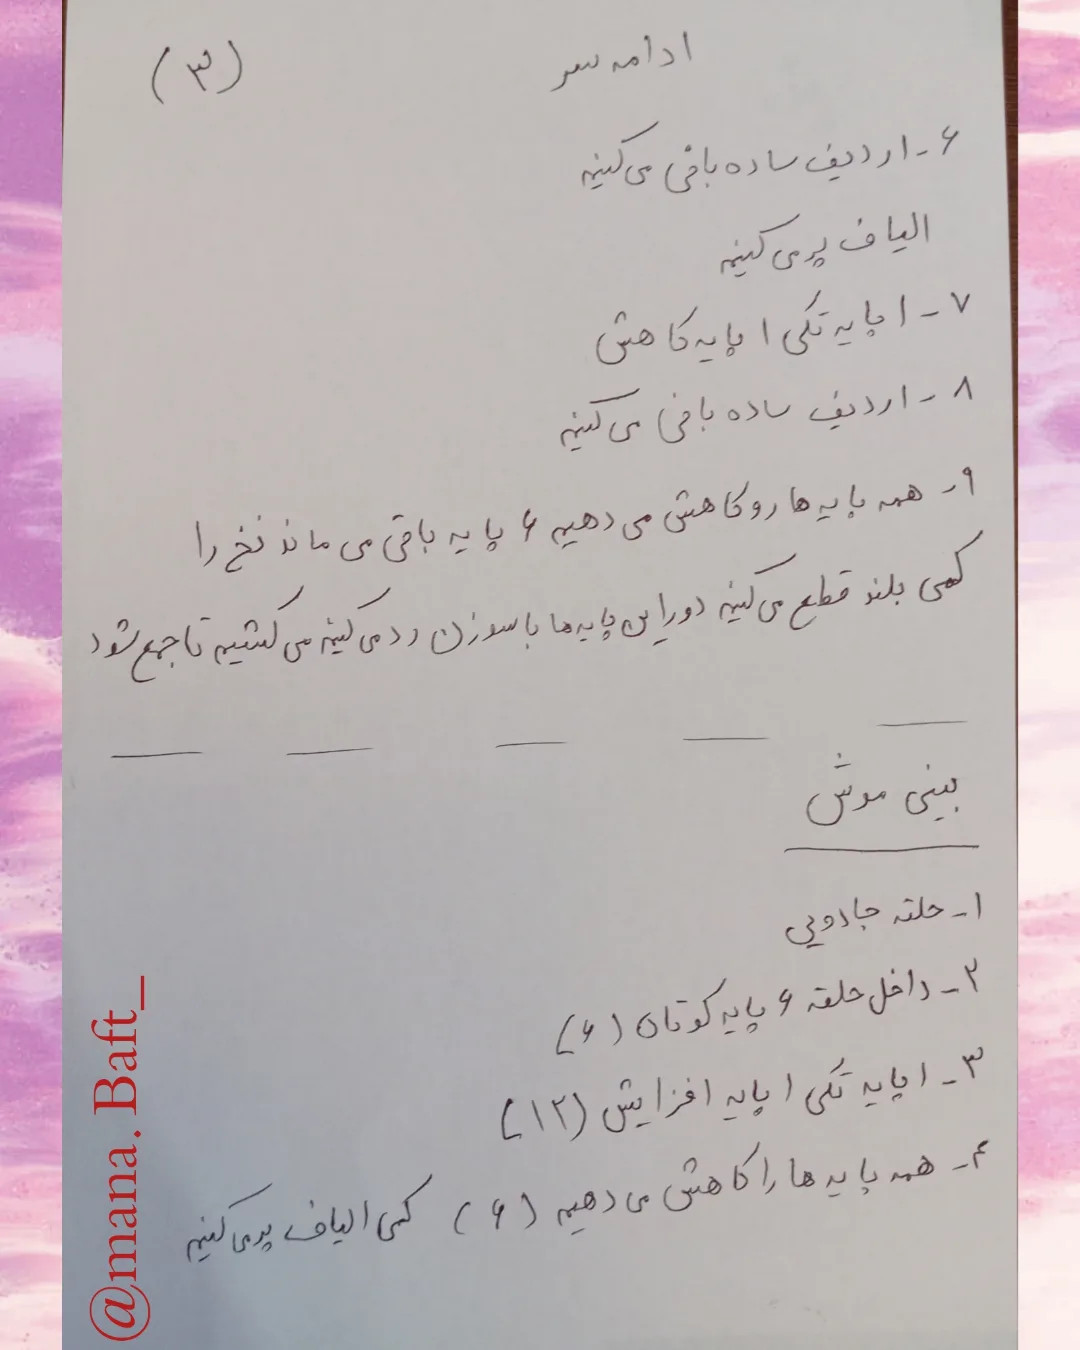 ادامه سر
(۳)
۶- ۱ ردیف ساده بافی می کنیم
الیاف پر می کنیم
۷- ۱ پایه تکی ۱ پایه کاهش
۸- ۱ ردیف ساده بافی می کنیم
۹- همه پایه ها رو کاهش می دهیم ۶ پایه باقی می ماند نخ را
کمی بلند قطع می کنیم دور این پایه ها با سوزن رد می کنیم می کشیم تا جمع شود
بینی موش
۱- حلقه جادویی
۲- داخل حلقه ۶ پایه کوتاه (۶)
۳- ۱ پایه تکی ۱ پایه افزایش (۱۲)
۴- همه پایه ها را کاهش می دهیم (۶) کمی الیاف پر می کنیم
@mana. Baft_